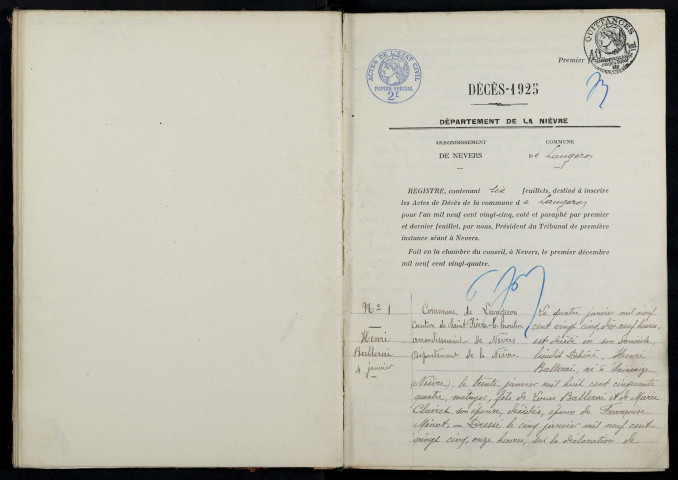 QUITTANCES
Premier
ACTES DE L'ETAT CIVIL
PAPIER SPÉCIAL
2F
DÉCÈS-1925
DÉPARTEMENT DE LA NIÈVRE
ARRONDISSEMENT COMMUNE
DE NEVERS De Langeron
REGISTRE, contenant six feuillets, destiné à inscrire
les Actes de Décès de la commune de Langeron
pour l'an mil neuf cent vingt-cinq, coté et paraphé par premier
et dernier feuillet, par nous, Président du Tribunal de première
instance séant à Nevers.
Fait en la chambre du conseil, à Nevers, le premier décembre
mil neuf cent vingt-quatre.
No 1
Henri
Balleroi
4 janvier
Commune de Langeron
Canton de Saint Pierre le moutier
arrondissement de Nevers
Département de la Nièvre
Le quatre janvier mil neuf
cent vingt cinq, dix neuf heures,
est décédé en son domicile,
Henri
Balleroi, né à
(Nièvre), le trente janvier mil huit cent cinquante
quatre, métayer, fils de Louis Balleroi et de Marie
Clairet, son épouse, décédés, époux de Françoise
Minot. — Dressé le cinq janvier mil neuf cent
vingt cinq, onze heures, sur la déclaration de